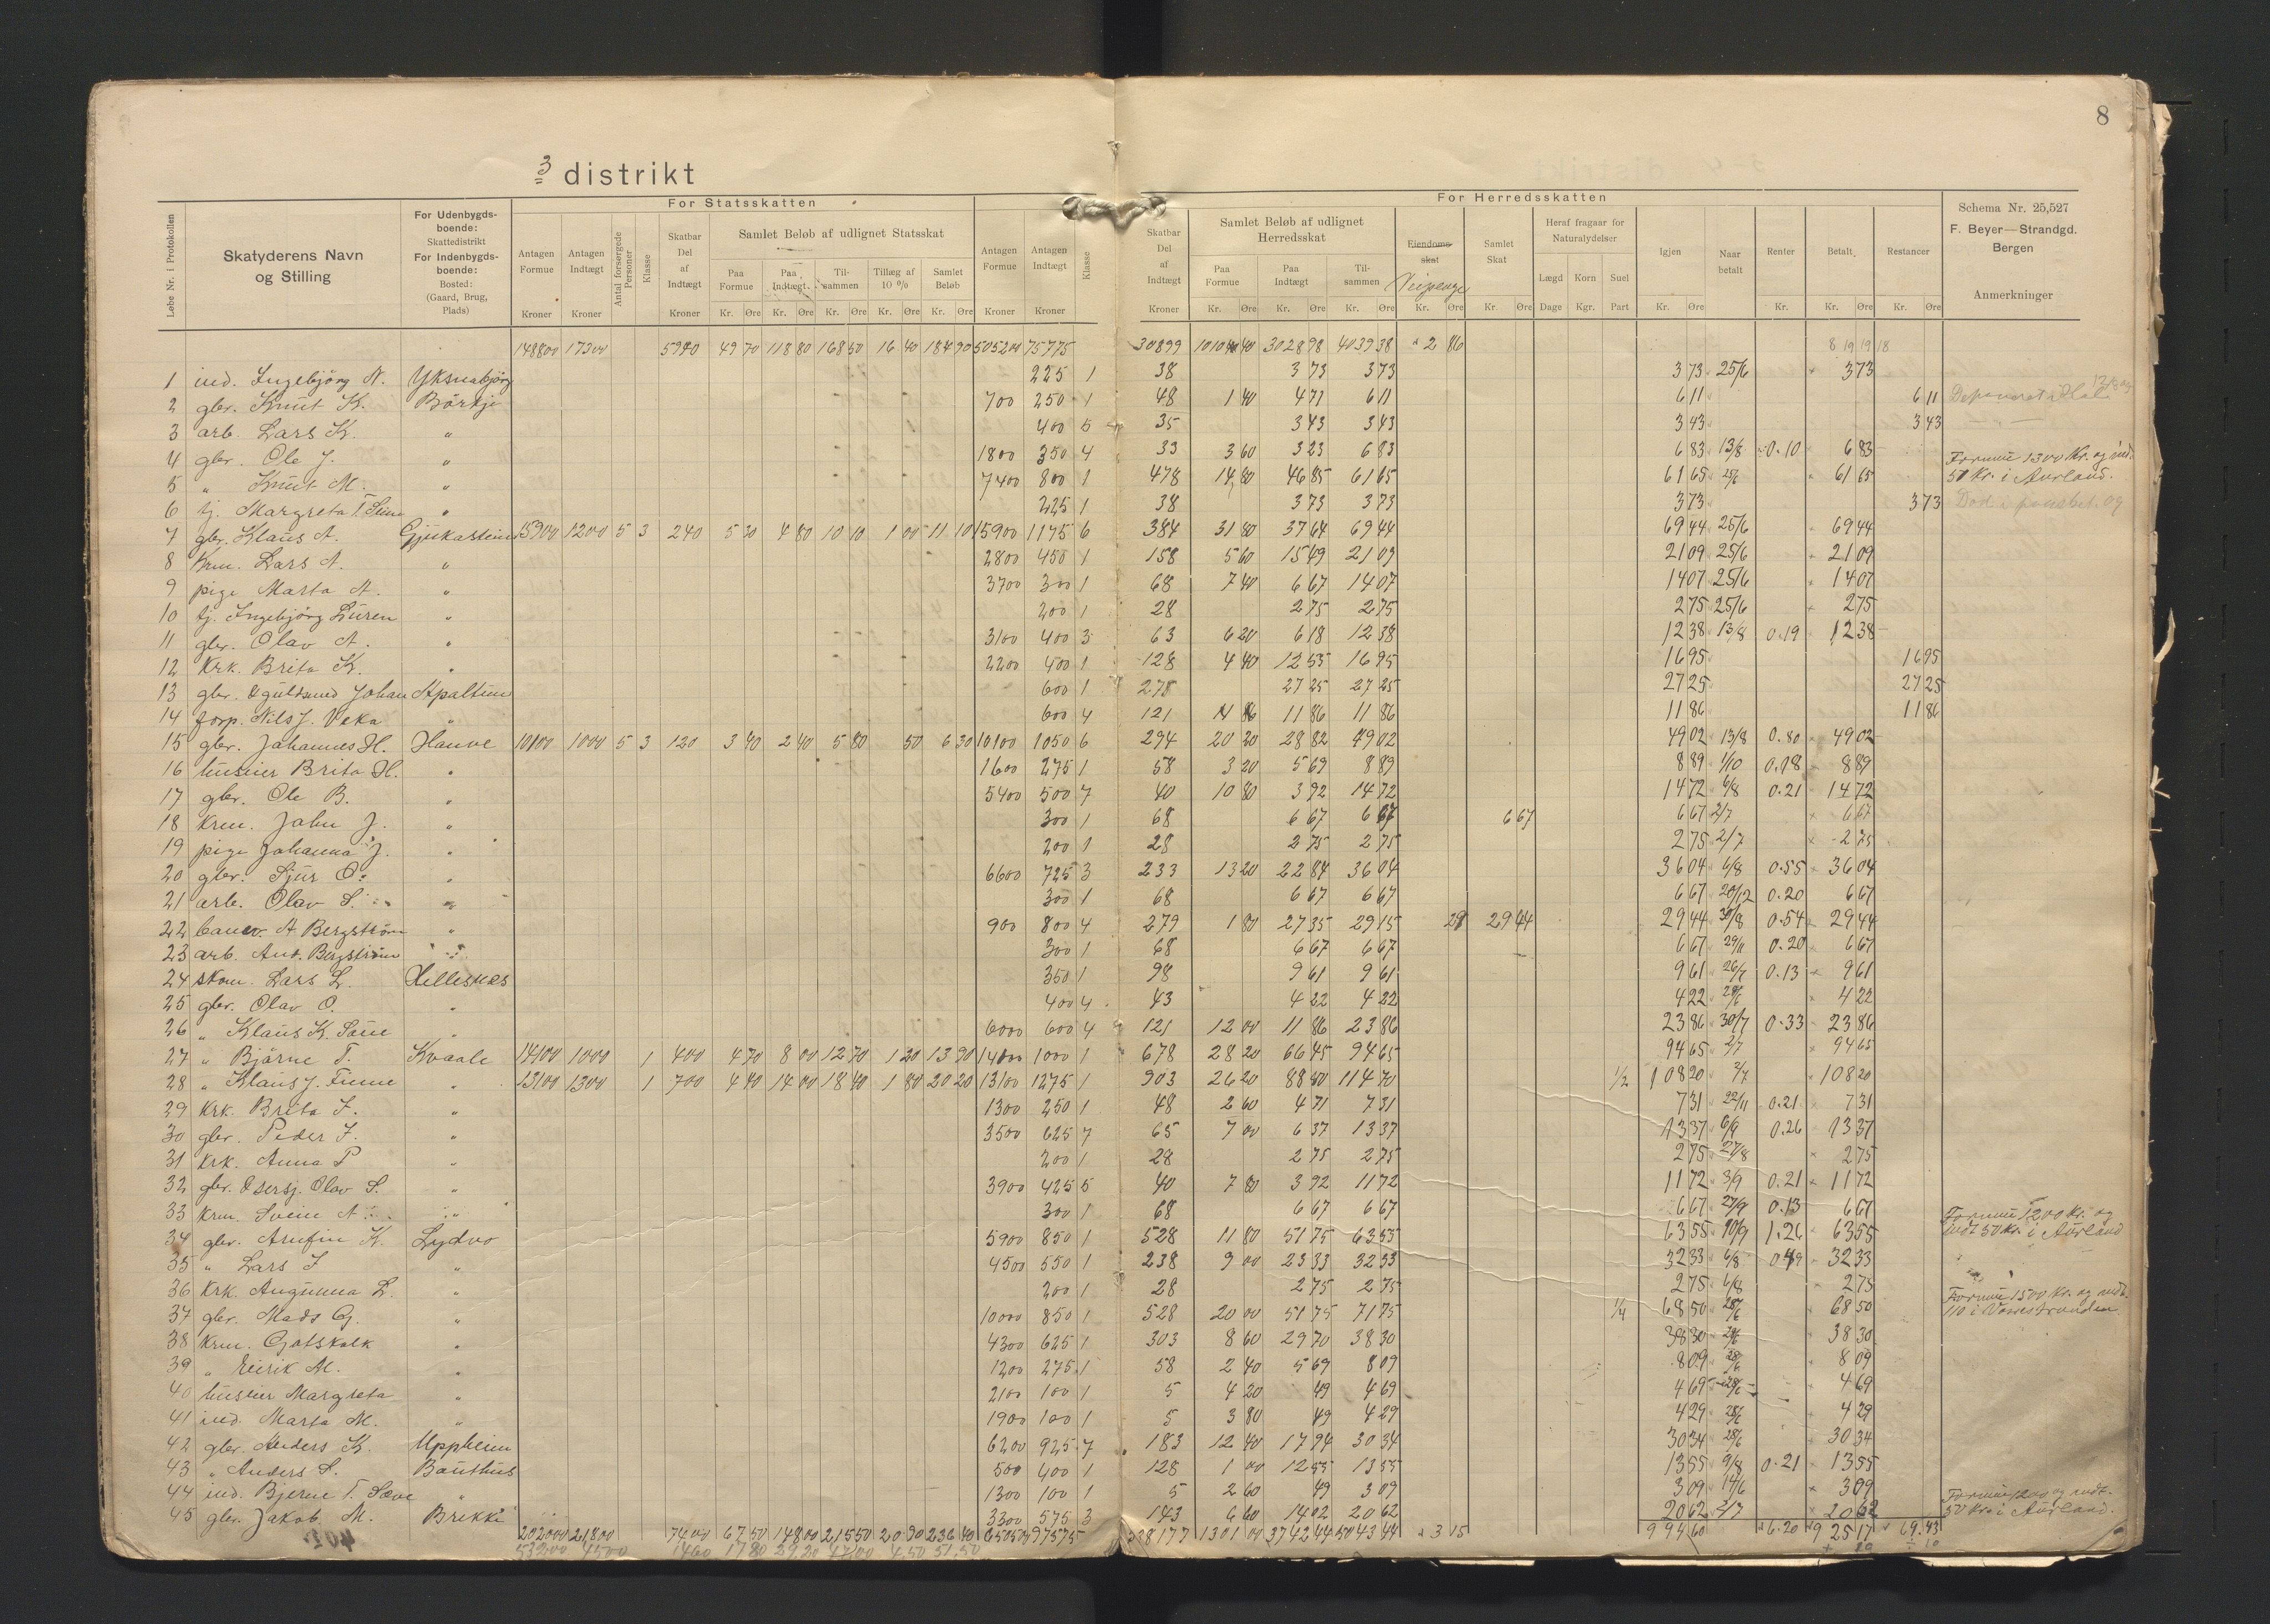 8
3 distrikt
For Statsskatten
For Herredsskatten
Løbe Nr. i Protokollen
Skatyderens Navn og Stilling
For Udenbygds-boende: Skattedistrikt For Indenbygds-boende: Bosted: (Gaard, Brug, Plads)
Antagen Formue Kroner
Antagen Indtægt Kroner
Antal forsørgede Personer
Klasse
Skatbar Del af Indtægt Kroner
Samlet Beløb af udlignet Statsskat
Paa Formue Kr. Øre
Paa Indtægt. Kr. Øre
Til-sammen Kr. Øre
Tillæg af 10 % Kr. Øre
Samlet Beløb Kr. Øre
Antagen Formue Kroner
Antagen Indtægt Kroner
Klasse
Skatbar Del af Indtægt Kroner
Samlet Beløb af udlignet Herredsskat
Paa Formue Kr. Øre
Paa Indtægt Kr. Øre
Til-sammen Kr. Øre
Eiendoms-skat Veipenge Kr. Øre
Samlet Skat Kr. Øre
Heraf fragaar for Naturalydelser
Lægd Dage
Korn Kgr.
Suel Part
Igjen Kr. Øre
Naar betalt
Renter Kr.
Betalt Kr. Øre
Restancer Kr. Øre
Schema Nr. 25,527
F. Beyer—Strandgd.
Bergen
Anmerkninger
148800 17300 5940 49 70 118 80 168 50 16 40 184 90 505200 75775 30899 1010 40 3028 98 4039 38 2 86
1 ind. Ingebjörg N. Yksnabjörg 225 1 38 3 73 3 73 3 73 25/6 3 73
2 gbr. Knut K. Börkje 700 250 1 48 1 40 4 71 6 11 6 11 6 11
3 arb. Lars K. " 400 5 35 3 43 3 43 3 43 3 43
4 gbr. Ole J. " 1800 350 4 33 3 60 3 23 6 83 6 83 13/8 0.10 6 83 Formue 1300 Kr. og ind.
5 " Knut M. " 7400 800 1 478 14 80 46 85 61 65 61 65 61 65 50 Kr. i Aurland.
6 tj. Margreta T. " 225 1 38 3 73 3 73 3 73 3 73
7 gbr. Klaus A. Gjukastein 15900 1200 5 3 240 5 30 4 80 10 10 1 00 11 10 15900 1175 6 384 31 80 37 64 69 44 69 44 25/6 69 44
8 Krm. Lars A. " 2800 450 1 158 5 60 15 49 21 09 21 09 25/6 21 09
9 pige Marta A. " 3700 300 1 68 7 40 6 67 14 07 14 07 25/6 14 07
10 tj. Ingebjörg Luren " 200 1 28 2 75 2 75 2 75 25/6 2 75
11 gbr. Olav A. " 3100 400 3 63 6 20 6 18 12 38 12 38 13/8 0.19 12 38
12 Krk. Brita K. " 2200 400 1 128 4 40 12 55 16 95 16 95 16 95
13 gbr. & guldsmed Johan 600 1 278 27 25 27 25 27 25 27 25
14 forp. Nils J. Veka " 600 4 121 11 86 11 86 11 86 11 86
15 gbr. Johannes H. Hauve 10100 1000 5 3 120 3 40 2 40 5 80 50 6 30 10100 1050 6 294 20 20 28 82 49 02 49 02 13/8 0.80 49 02
16 huseier Brita H. " 1600 275 1 58 3 20 5 69 8 89 8 89 1/10 0.18 8 89
17 gbr. Ole B. " 5400 500 7 40 10 80 3 92 14 72 14 72 6/8 0.21 14 72
18 Krm. John J. " 300 1 68 6 67 6 67 6 67 6 67 2/7 6 67
19 pige Johanna J. " 200 1 28 2 75 2 75 2 75 2/7 2 75
20 gbr. Sjur O. " 6600 725 3 233 13 20 22 84 36 04 36 04 6/8 0.55 36 04
21 arb. Olav S. " 300 1 68 6 67 6 67 6 67 20/12 0.20 6 67
22 A Bergström " 900 800 4 279 1 80 27 35 29 15 29 29 44 29 44 30/8 0.54 29 44
23 arb. And. Bergström " 300 1 68 6 67 6 67 6 67 29/11 0.20 6 67
24 skom. Lars L. Hillesnes 350 1 98 9 61 9 61 9 61 26/7 0.13 9 61
25 gbr. Olav O. " 400 4 43 4 22 4 22 4 22 4 22
26 " Klaus K. " 6000 600 4 121 12 00 11 86 23 86 23 86 30/7 0.33 23 86
27 " Bjärne T. Kvaale 14100 1000 1 400 4 70 8 00 12 70 1 20 13 90 14100 1000 1 678 28 20 66 45 94 65 94 65 2/7 94 65
28 " Klaus J. Finne " 13100 1300 1 700 4 40 14 00 18 40 1 80 20 20 13100 1275 1 903 26 20 88 50 114 70 1/2 108 20 2/7 108 20
29 Krk. Brita J. " 1300 250 1 48 2 60 4 71 7 31 7 31 22/11 0.21 7 31
30 gbr. Peder J. " 3500 625 7 65 7 00 6 37 13 37 13 37 6/9 0.26 13 37
31 Krk. Anna P " 200 1 28 2 75 2 75 2 75 27/8 2 75
32 gbr. & sersj. Olav S. " 3900 425 5 40 7 80 3 92 11 72 11 72 3/9 0.21 11 72
33 Krm. Svein A. " 300 1 68 6 67 6 67 6 67 27/9 0.13 6 67 Formue 1200 Kr. og
34 gbr. Arnfin K. Lydvo 5900 850 1 528 11 80 51 75 63 55 63 55 10/9 1.26 63 55 indt 50 Kr. i Aurland
35 " Lars J " 4500 550 1 238 9 00 23 33 32 33 32 33 6/8 32 33
36 Krk. Angunna L. " 200 1 28 2 75 2 75 2 75 6/8 2 75 Formue 1500 Kr. og indt.
37 gbr. Mads G. " 10000 850 1 528 20 00 51 75 71 75 1/4 68 50 28/6 68 50 110 i Vossestranden
38 Krm. Gotskalk " 4300 625 1 303 8 60 29 70 38 30 38 30 38 30
39 " Eirik M. " 1200 275 1 58 2 40 5 69 8 09 8 09 28/6 8 09
40 huseier Margreta " 2100 100 1 5 4 20 49 4 69 4 69 28/6 4 69
41 ind. Marta M. " 1900 100 1 5 3 80 49 4 29 4 29 28/6 4 29
42 gbr. Anders K. Uppheim 6200 925 7 183 12 40 17 94 30 34 30 34 28/6 30 34
43 " Anders S. Bauthus 500 400 1 128 1 00 12 55 13 55 13 55 9/8 0.21 13 55
44 ind. Bjerne T. " 1300 100 1 5 2 60 49 3 09 3 09 14/6 3 09 Formue 1200 og indt.
45 gbr. Jakob M. Brekke 3300 575 3 143 6 60 14 02 20 62 20 62 2/7 20 62 50 Kr. i Aurland.
202000 21800 7400 67 50 148 00 215 50 20 90 236 40 650500 97575 38177 1301 00 3742 44 5043 44 3 15 994 60 6.20 925 17 69.43
53200 4500 1460 17 80 29 20 47 00 4 50 51.50